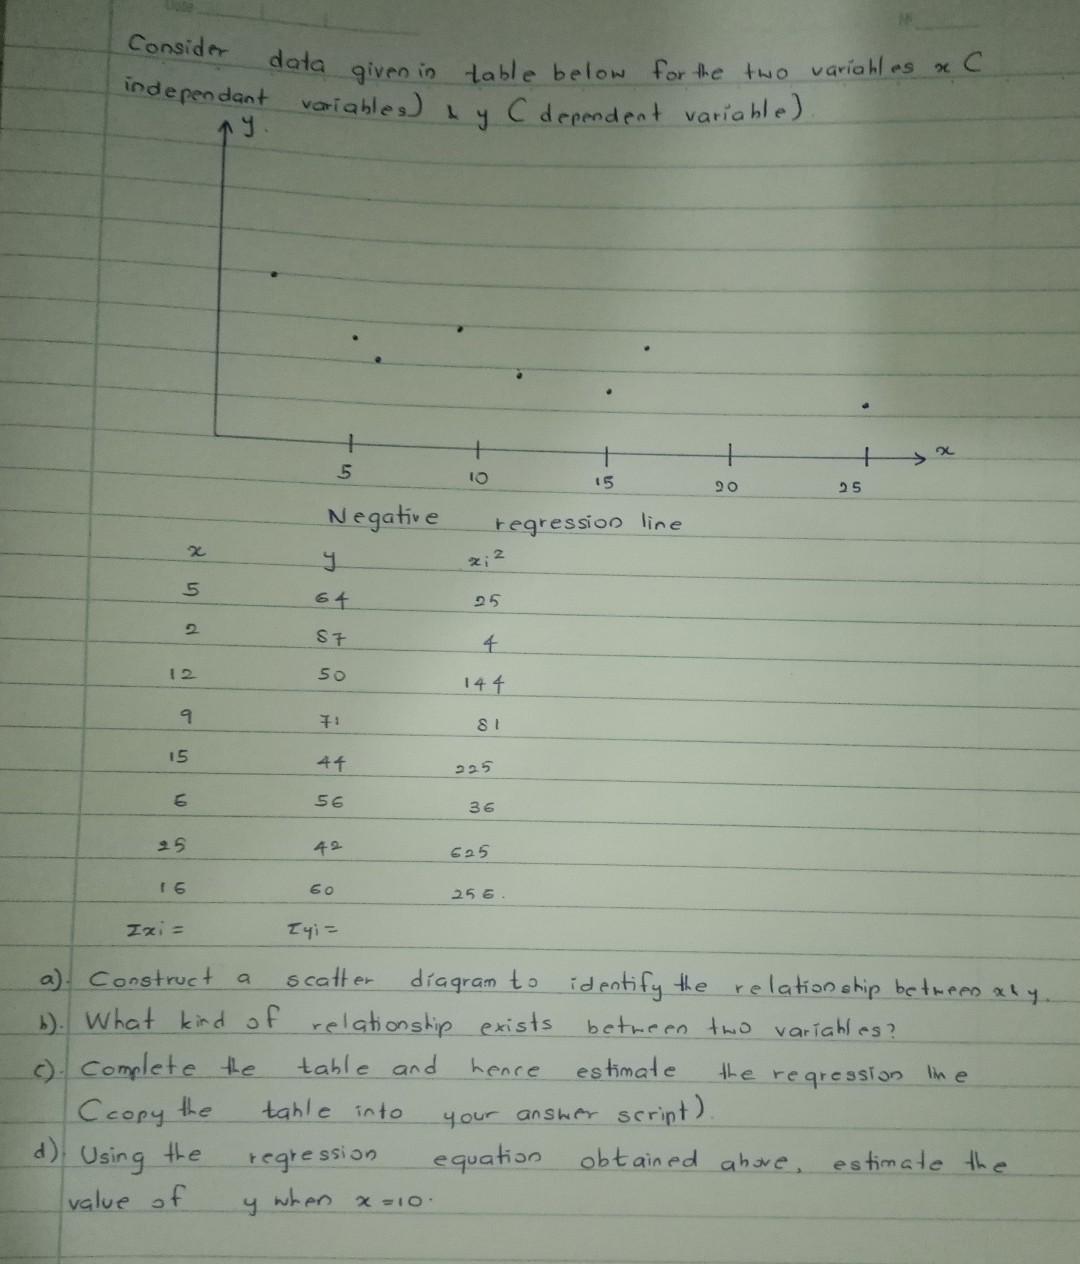 Consider data given in table below for the two variables x (
independant variables) & y ( dependent variable)
y.
x
5 10 15 20 25
Negative regression line
x y xi²
5 64 25
2 87 4
12 50 144
9 71 81
15 44 225
6 56 36
25 42 625
16 60 256.
Σxi = Σyi =
a). Construct a scatter diagram to identify the relationship between x & y.
b). What kind of relationship exists between two variables?
c). Complete the table and hence estimate the regression line
(copy the table into your answer script).
d). Using the regression equation obtained above, estimate the
value of y when x = 10.